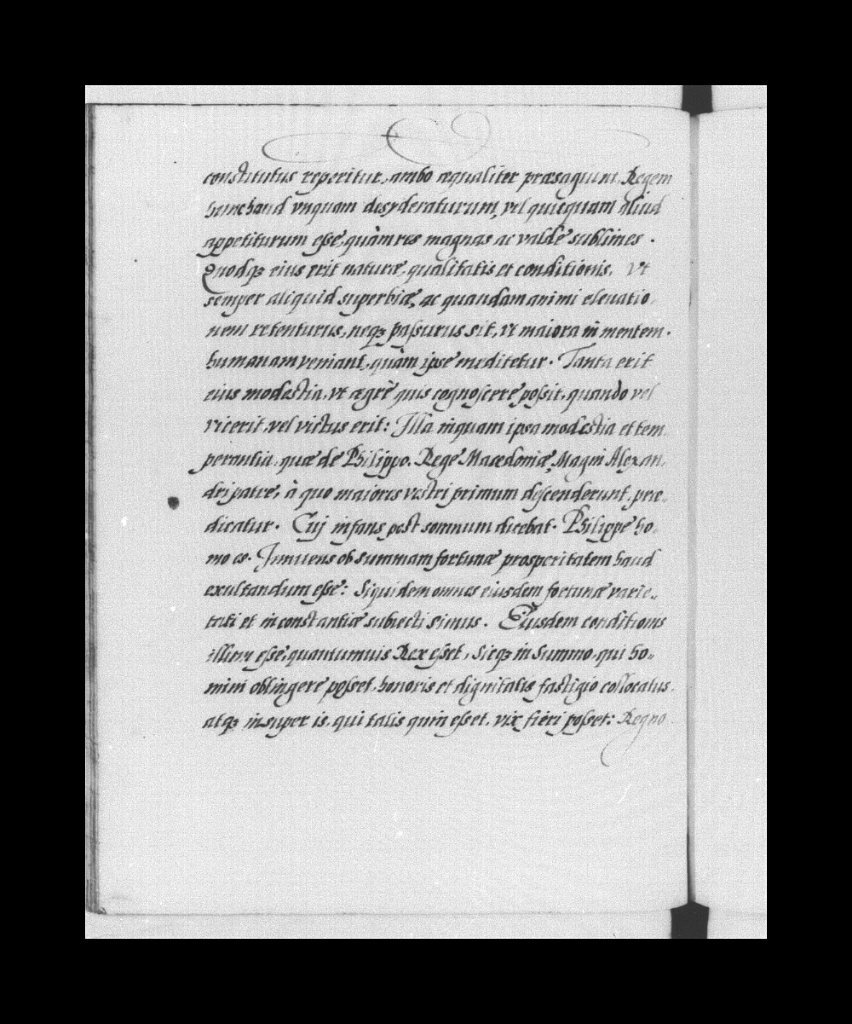 constitutus reperitur, ambo æqualiter præsagiunt, Regem
hunc haud vnquam desyderaturum, vel quicquam aliud
appetiturum esse, quàm res magnas ac valdè sublimes.
Quodq; eius erit naturæ, qualitatis et conditionis, vt
semper aliquid superbiæ, ac quandam animi eleuatio
nem retenturus, neq; passurus sit, vt maiora in mentem
humanam veniant, quàm ipse meditetur. Tanta erit
eius modestia, vt ægrè quis cognoscere possit, quando vel
vicerit, vel victus erit: Illa inquam ipsa modestia et tem
perantia, quæ de Philippo, Rege Macedoniæ, Magni Alexan
dri patre, à quo maiores vestri primum descenderunt, præ..
dicatur. Cui infans post somnum dicebat. Philippe ho..
mo es. Innuens ob summam fortunæ prosperitatem haud
exultandum esse: Siquidem omnes eiusdem fortunæ varie..
tati et inconstantiæ subiecti simus. Eiusdem conditionis
illum esse, quantumuis Rex esset, sicq; in summo, qui ho..
mini obtingere posset, honoris et dignitatis fastigio collocatus,
atq; insuper is, qui talis quin esset, vix fieri posset: Regno